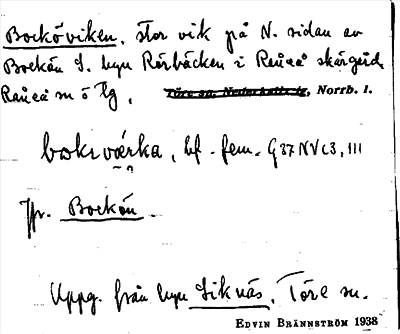 Bocköviken, stor vik på N. sidan av
Bockön S. byn Rörbäcken i Råneå skärgård
Råneå sn ö Lg,
Töre sn, Nederkalix tg, Norrb. l.
bokıværka, bf. fem. G 37 NV c3, III
Jfr. Bockön.
Uppg. från byn Siknäs, Töre sn.
EDVIN BRÄNNSTRÖM 1938